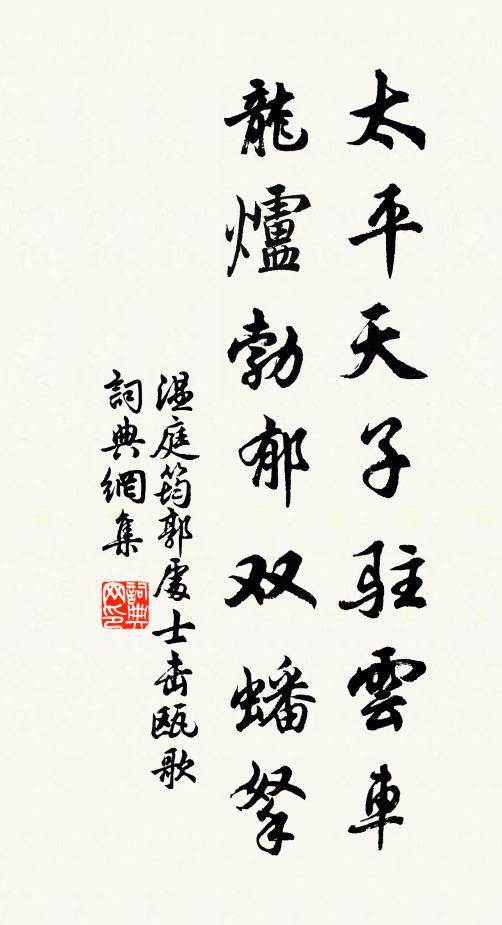 太平天子駐雲車
龍爐勃郁双蟠拏
温庭筠郭處士击瓯歌
詞典網集
詞典网印